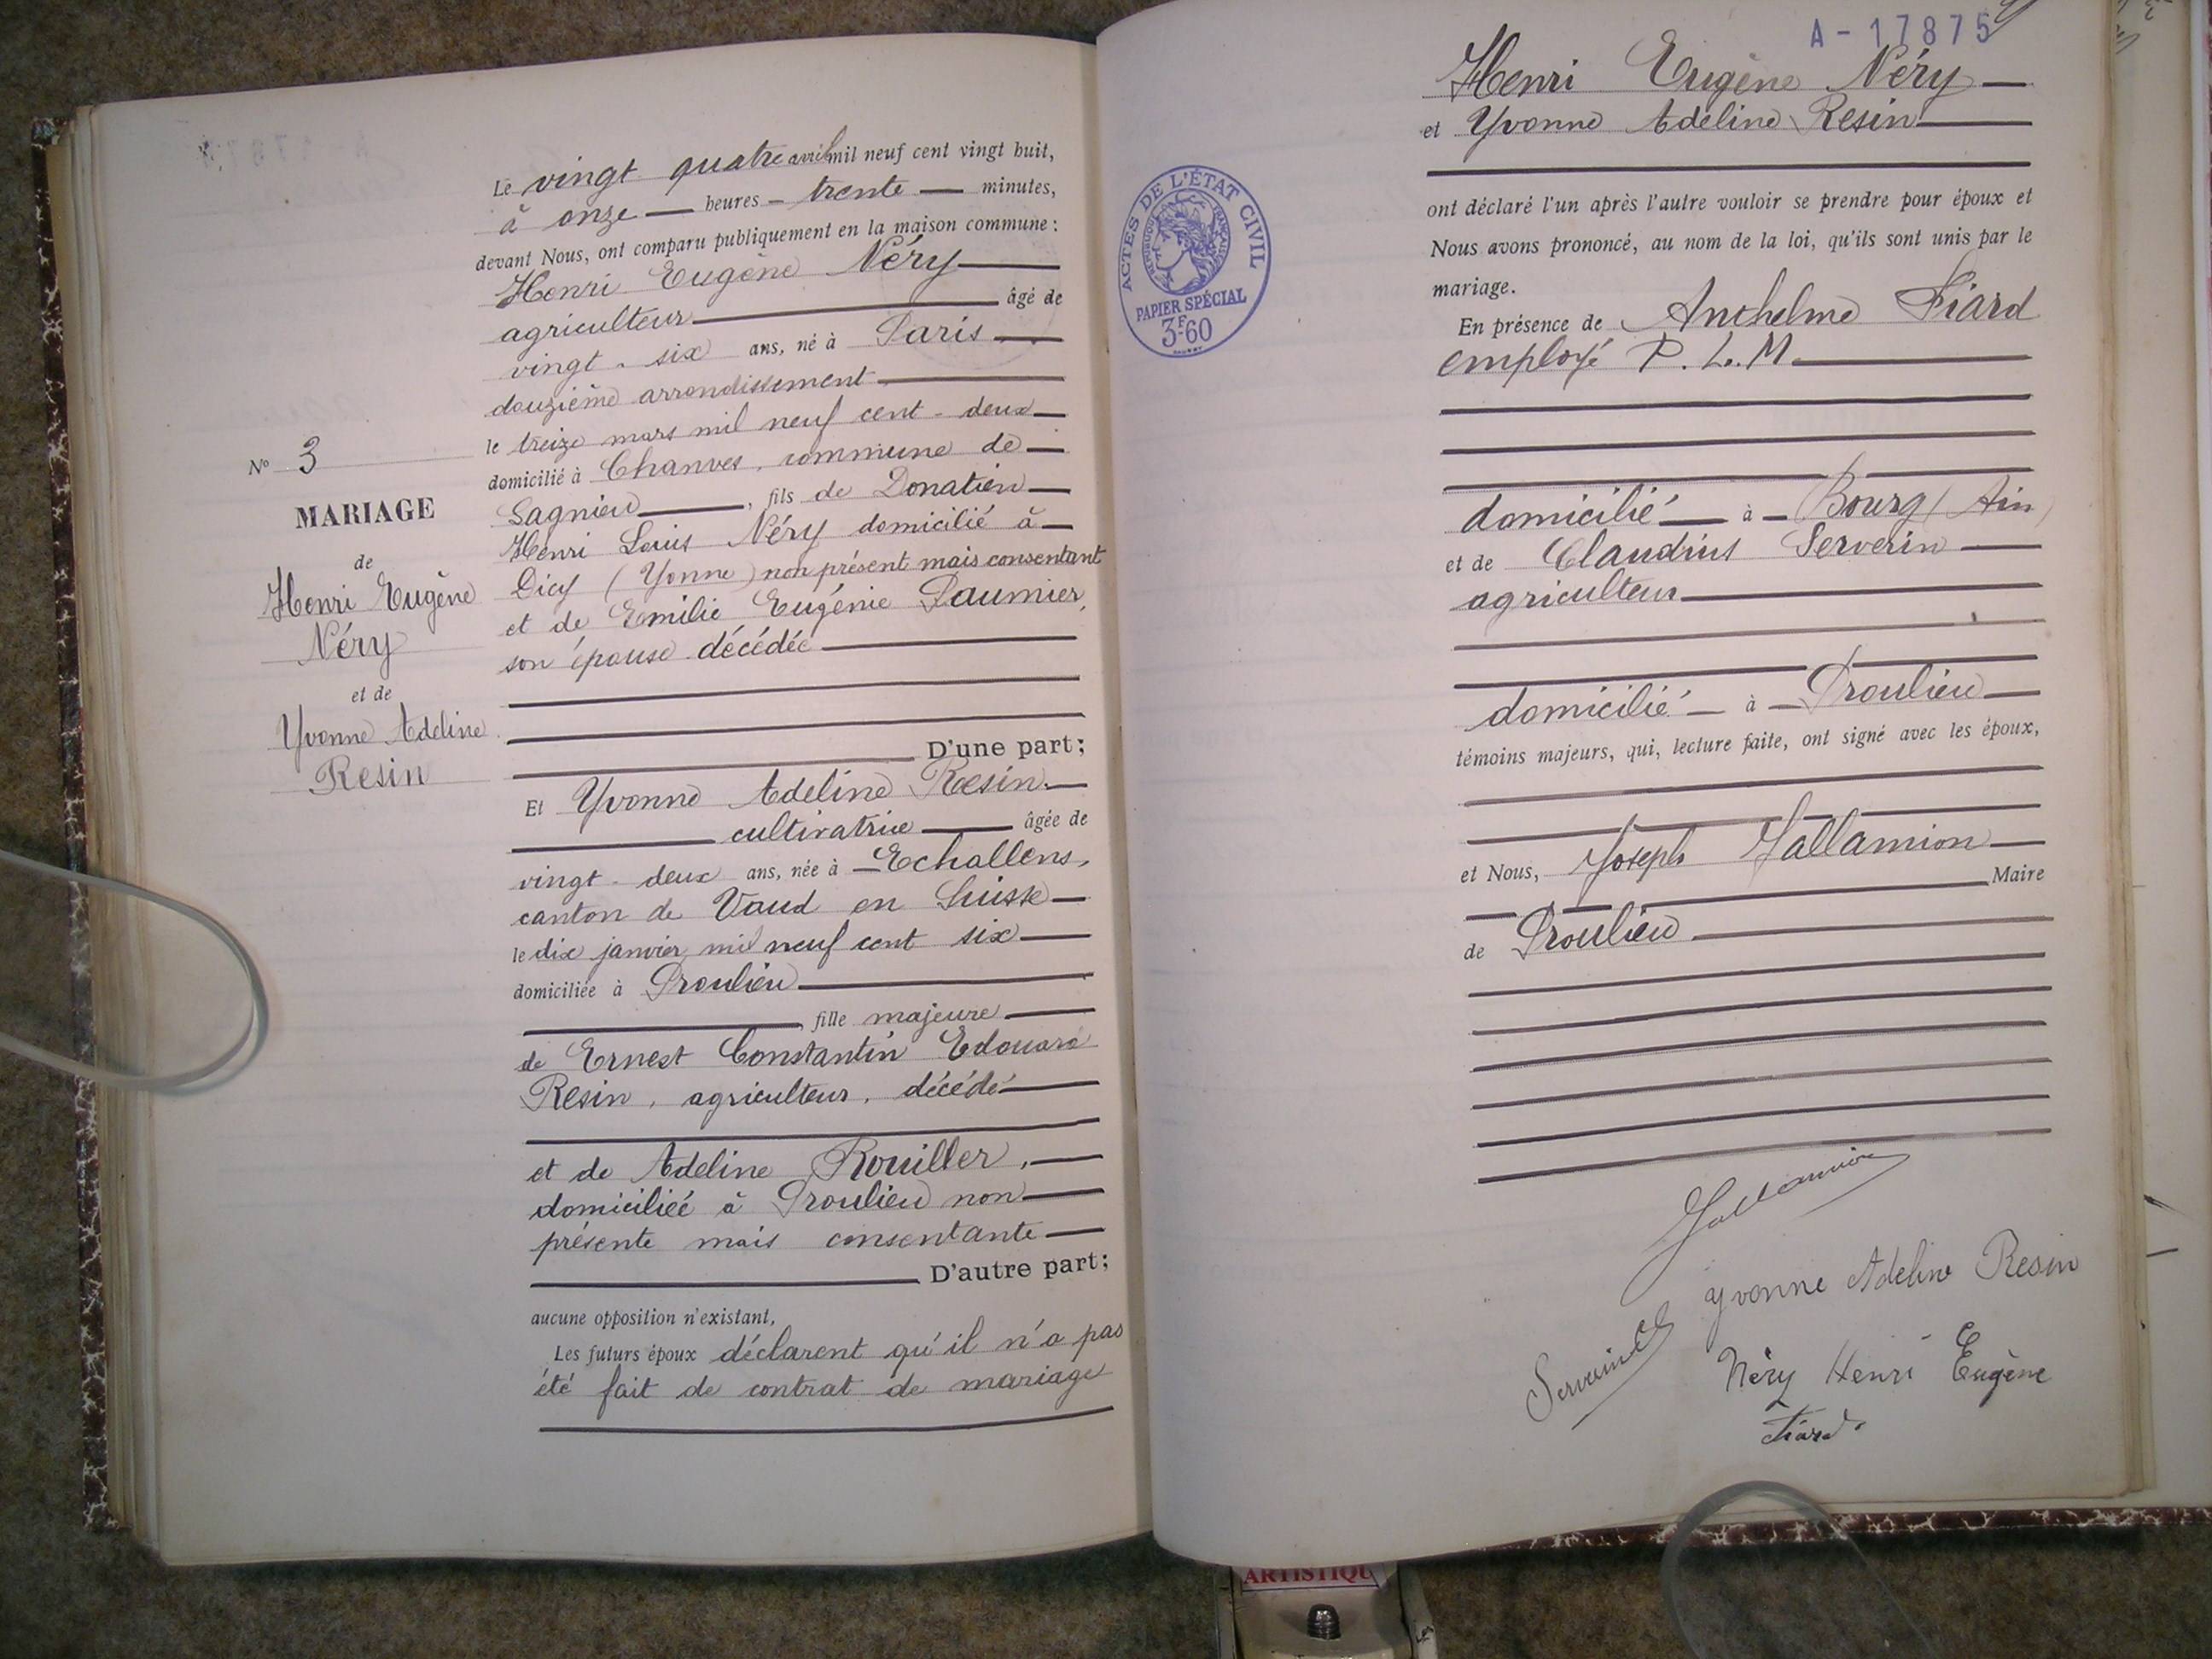 Le vingt quatre avril mil neuf cent vingt huit,
à onze — heures — trente — minutes,
devant Nous, ont comparu publiquement en la maison commune :
Henri Eugène Néry
agriculteur âgé de
vingt-six ans, né à Paris
douzième arrondissement
le treize mars mil neuf cent-deux
domicilié à Chanves, commune de
Sagnieu, fils de Donatien
Henri Louis Néry domicilié à
Dicy (Yonne) non présent mais consentant
et de Emilie Eugénie Paumier,
son épouse décédée
D'une part;
N° 3
MARIAGE
de
Henri Eugène
Néry
et de
Yvonne Adeline
Resin
Et Yvonne Adeline Resin.
cultivatrice âgée de
vingt-deux ans, née à Echallens,
canton de Vaud en Suisse
le dix janvier mil neuf cent six
domiciliée à Proulieu
fille majeure
de Ernest Constantin Edouard
Resin, agriculteur, décédé
et de Adeline Rouiller,
domiciliée à Proulieu non
présente mais consentante
D'autre part;
aucune opposition n'existant,
Les futurs époux déclarent qu'il n'a pas
été fait de contrat de mariage
A-17875
Henri Eugène Néry
et Yvonne Adeline Resin
ACTES DE L'ÉTAT CIVIL
RÉPUBLIQUE FRANÇAISE
PAPIER SPÉCIAL
3F60
ont déclaré l'un après l'autre vouloir se prendre pour époux et
Nous avons prononcé, au nom de la loi, qu'ils sont unis par le
mariage.
En présence de Anthelme Fiard
employé P.L.M.
domicilié — à — Bourg (Ain)
et de Claudius Serverin
agriculteur
domicilié — à — Proulieu
témoins majeurs, qui, lecture faite, ont signé avec les époux,
et Nous, Joseph Jallamion
Maire
de Proulieu
Jallamion
Yvonne Adeline Resin
Serverin
Néry Henri Eugène
Fiard
ARTISTIQU